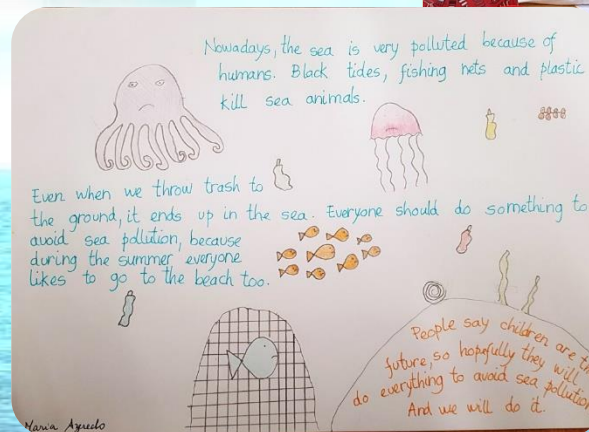 Nowadays, the sea is very polluted because of
humans. Black tides, fishing nets and plastic
kill sea animals.
Even when we throw trash to
the ground, it ends up in the sea. Everyone should do something to
avoid sea pollution, because
during the summer everyone
likes to go to the beach too.
People say children are th
future, so hopefully they will
do everything to avoid sea pollution
And we will do it.
Maria Azeredo